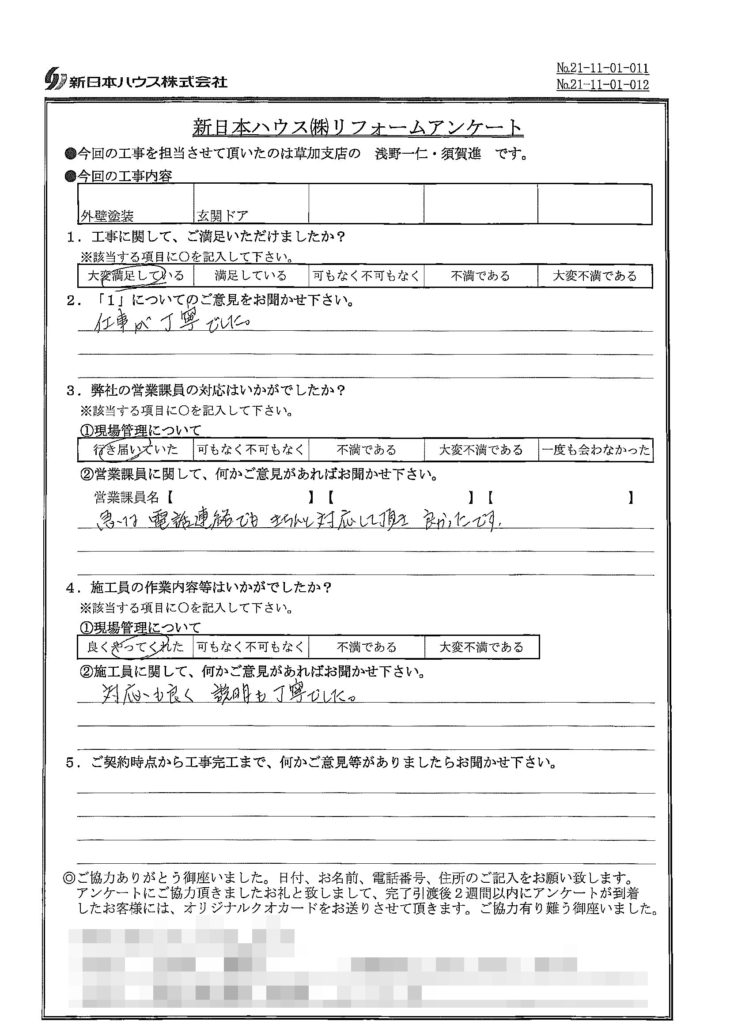 新日本ハウス株式会社
No.21-11-01-011
No.21-11-01-012
新日本ハウス㈱リフォームアンケート
●今回の工事を担当させて頂いたのは草加支店の 浅野一仁・須賀進 です。
●今回の工事内容
外壁塗装 玄関ドア
1．工事に関して、ご満足いただけましたか？
※該当する項目に○を記入して下さい。
大変満足している 満足している 可もなく不可もなく 不満である 大変不満である
2．「1」についてのご意見をお聞かせ下さい。
仕事が丁寧でした。
3．弊社の営業課員の対応はいかがでしたか？
※該当する項目に○を記入して下さい。
①現場管理について
行き届いていた 可もなく不可もなく 不満である 大変不満である 一度も会わなかった
②営業課員に関して、何かご意見があればお聞かせ下さい。
営業課員名【 】【 】【 】
電話連絡でも きちんと対応して頂き 良かったです.
4．施工員の作業内容等はいかがでしたか？
※該当する項目に○を記入して下さい。
①現場管理について
良くやってくれた 可もなく不可もなく 不満である 大変不満である
②施工員に関して、何かご意見があればお聞かせ下さい。
対応も良く 説明も丁寧でした。
5．ご契約時点から工事完工まで、何かご意見等がありましたらお聞かせ下さい。
◎ご協力ありがとう御座いました。日付、お名前、電話番号、住所のご記入をお願い致します。
アンケートにご協力頂きましたお礼と致しまして、完了引渡後２週間以内にアンケートが到着
したお客様には、オリジナルクオカードをお送りさせて頂きます。ご協力有り難う御座いました。